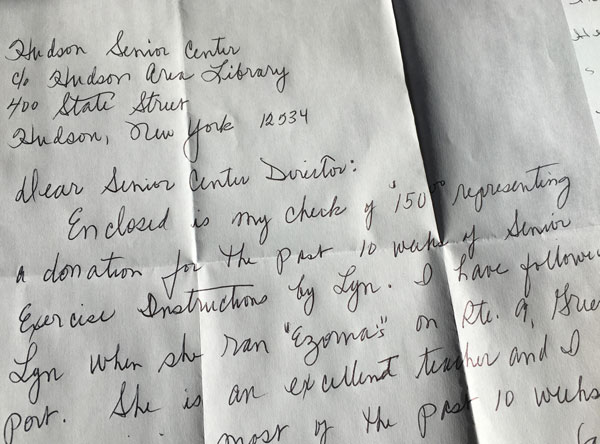 Hudson Senior Center
c/o Hudson Area Library
400 State Street
Hudson, New York 12534
Dear Senior Center Director:
Enclosed is my check of $150.00 representing
a donation for the past 10 weeks of Senior
Exercise Instructions by Lyn. I have followe
Lyn when she ran "Ezoma's" on Rte. 9, Gree
port. She is an excellent teacher and I
most of the past 10 weeks